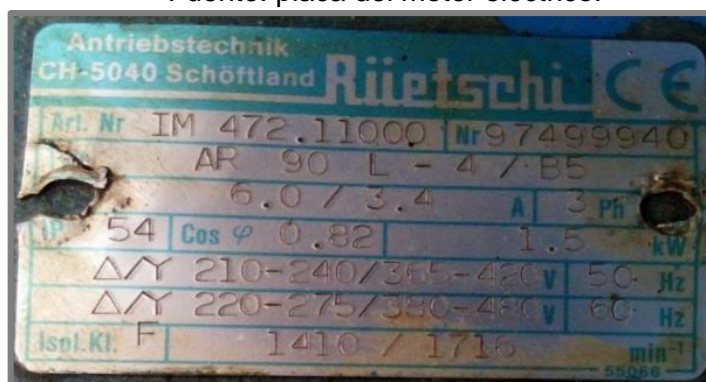 Fuente: placa del motor eléctrico.
Antriebstechnik
CH-5040 Schöftland Rüetschi CE
Art. Nr IM 472.11000 Nr 97499940
AR 90 L - 4 / B5
6.0 / 3.4 A 3 Ph
IP 54 Cos φ 0.82 1.5 kW
Δ/Y 210-240/365-420 V 50 Hz
Δ/Y 220-275/380-480 V 60 Hz
Isol.Kl. F 1410 / 1716 min⁻¹
55066